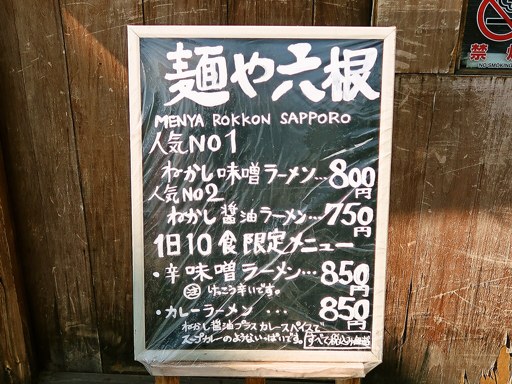 麺や六根
MENYA ROKKON SAPPORO
人気NO1
ねかし味噌ラーメン…800円
人気NO2
ねかし醤油ラーメン…750円
1日10食限定メニュー
・辛味噌ラーメン…850円
注 けっこう辛いです。
・カレーラーメン …850円
ねかし醤油プラスカレースパイスで
スープカレーのようないっぱいです。
すべて税込み
禁
NO SMOKING